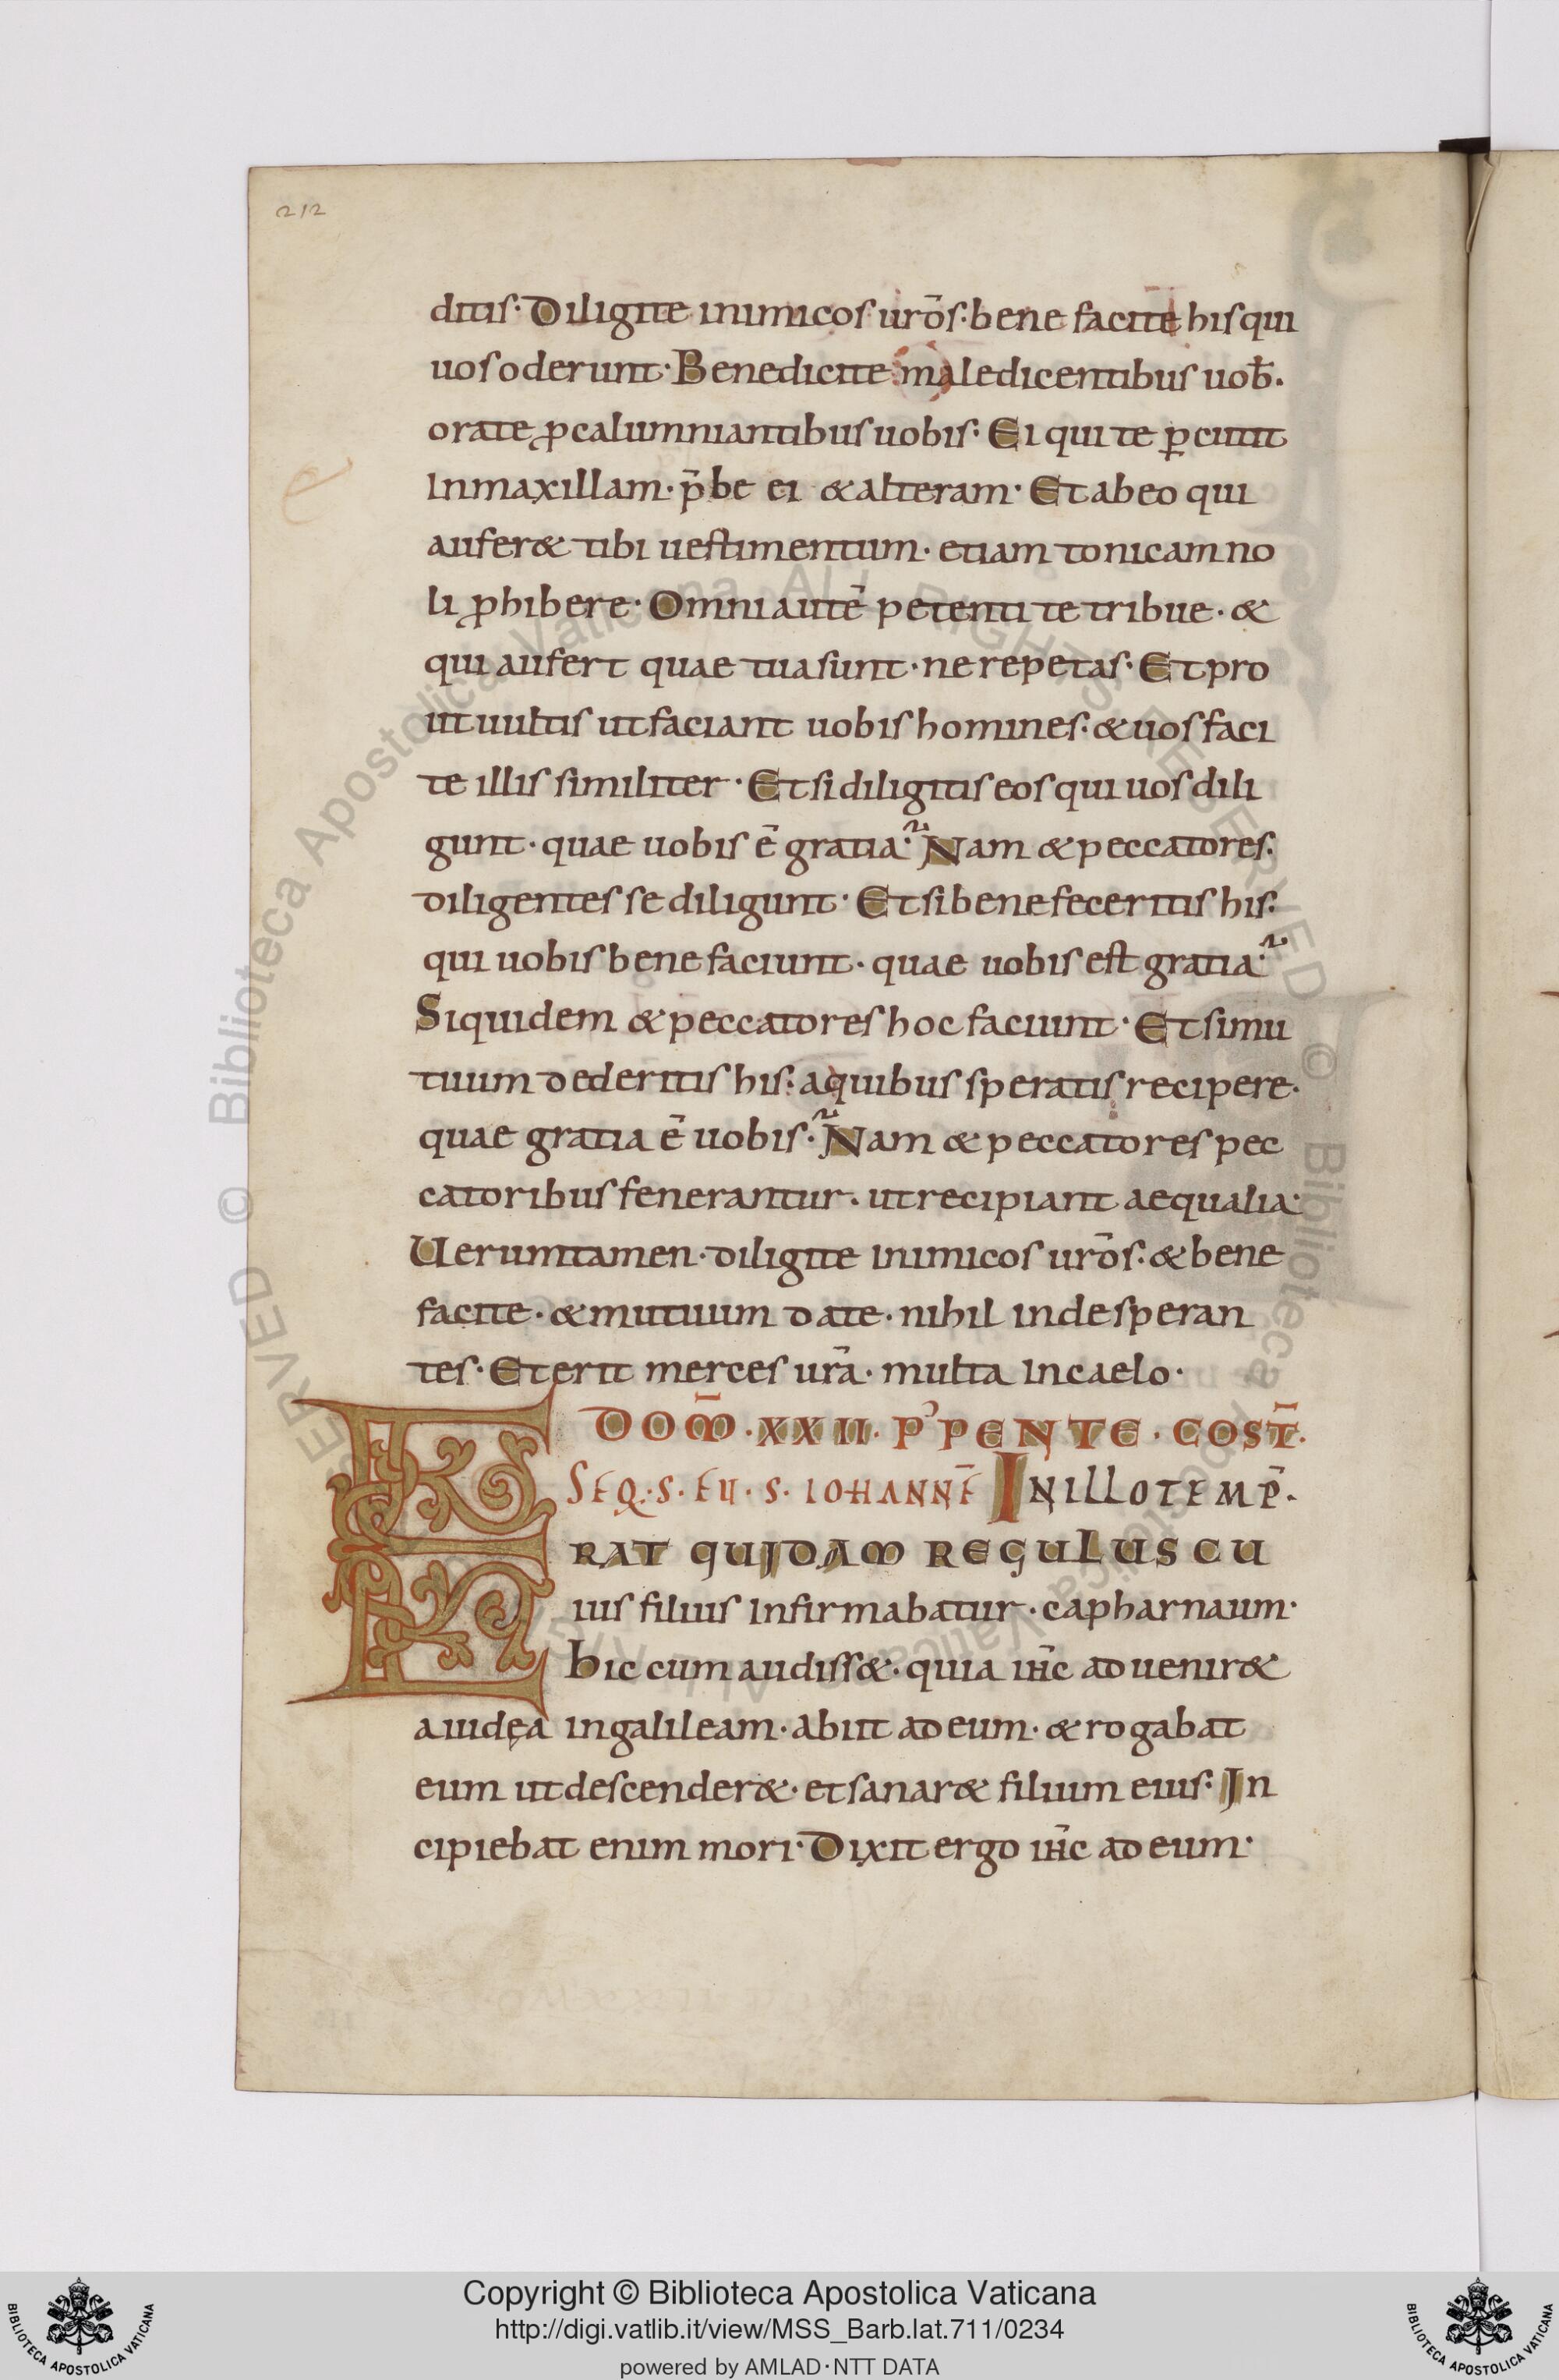 212
ditis· Diligite inimicos ur̄os· bene facite his qui
uos oderunt· Benedicite maledicentibus uob̄.
orate ꝓcalumniantibus uobis· Ei qui te ꝑcutit
In maxillam· p̄be ei & alteram· Et ab eo qui
aufer& tibi uestimentum· etiam tonicam no
li ꝓhibere· Omni autē petenti te tribue· &
qui aufert quae tua sunt· ne repetas· Et pro
ut uultis ut faciant uobis homines· & uos faci
te illis similiter· Et si diligitis eos qui uos dili
gunt· quae uobis ē gratia? Nam & peccatores·
diligentes se diligunt· Et si bene feceritis his·
qui uobis bene faciunt· quae uobis est gratia?
Siquidem & peccatores hoc faciunt· Et si mu
tuum dederitis his· a quibus speratis recipere·
quae gratia ē uobis? Nam & peccatores pec
catoribus fenerantur· ut recipiant aequalia·
Uerumtamen· diligite inimicos ur̄os· & bene
facite· & mutuum date· nihil inde speran
tes· Et erit merces ur̄a· multa in caelo·
DOM̄· XXII· P' PENTE·COST̄·
SEQ·S·EU·S·IOHANNĒ IN ILLO TEMP̄·
ERAT QUIDAM REGULUS CU
ius filius infirmabatur· capharnaum·
hic cum audiss&· quia ih̄c aduenir&
a iudęa in galileam· abiit ad eum· & rogabat
eum ut descender&· et sanar& filium eius· In
cipiebat enim mori· Dixit ergo ih̄c ad eum·
e
© Biblioteca Apostolica Vaticana ALL RIGHTS RESERVED
Copyright © Biblioteca Apostolica Vaticana
http://digi.vatlib.it/view/MSS_Barb.lat.711/0234
powered by AMLAD·NTT DATA
BIBLIOTECA APOSTOLICA VATICANA
BIBLIOTECA APOSTOLICA VATICANA